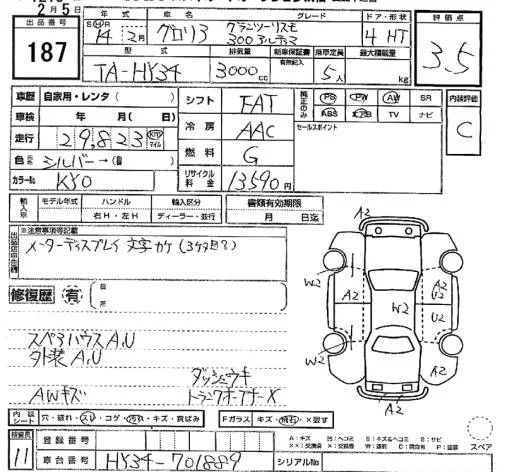 2月5日
出品番号 187
年式 車名 グレード ドア・形状 評価点
SH 14年 2月 グロリア グランツーリスモ 300アルティマ 4 HT 3.5
型式 排気量 新車保証書 乗車定員 最大積載量
TA-HY34 3000cc 有無記入 5人 kg
車歴 自家用・レンタ・( ) シフト FAT 純正のみ PS PW AW SR 内装評価
車検 年 月( 日) 冷房 AAC ABS エアB TV ナビ C
走行 29,823 km マイル 燃料 G セールスポイント
色 シルバー→( ) リサイクル料金 13590円
カラーNo KY0
輸入車 モデル年式 ハンドル 輸入区分 書類有効期限
右H・左H ディーラー・並行 月 日迄
※注意事項等記載
メーターディスプレイ 文字カケ (3ケタ目?)
修復歴 有 箇所
A2
W2 A2 W2 A2 A2 U2 W2 A2
A2
スペアハウスA,U
外装A,U
ダッシュウキ
AWキズ トランクオープナーX
内装シート 穴・破れ・スレ・コゲ・汚れ・キズ・黄ばみ Fガラス キズ・飛石・X要す
検査員 11 登録番号
車台番号 HY34-701889 シリアルNo
A:キズ H:ヘコミ B:キズ&ヘコミ S:サビ
スペア